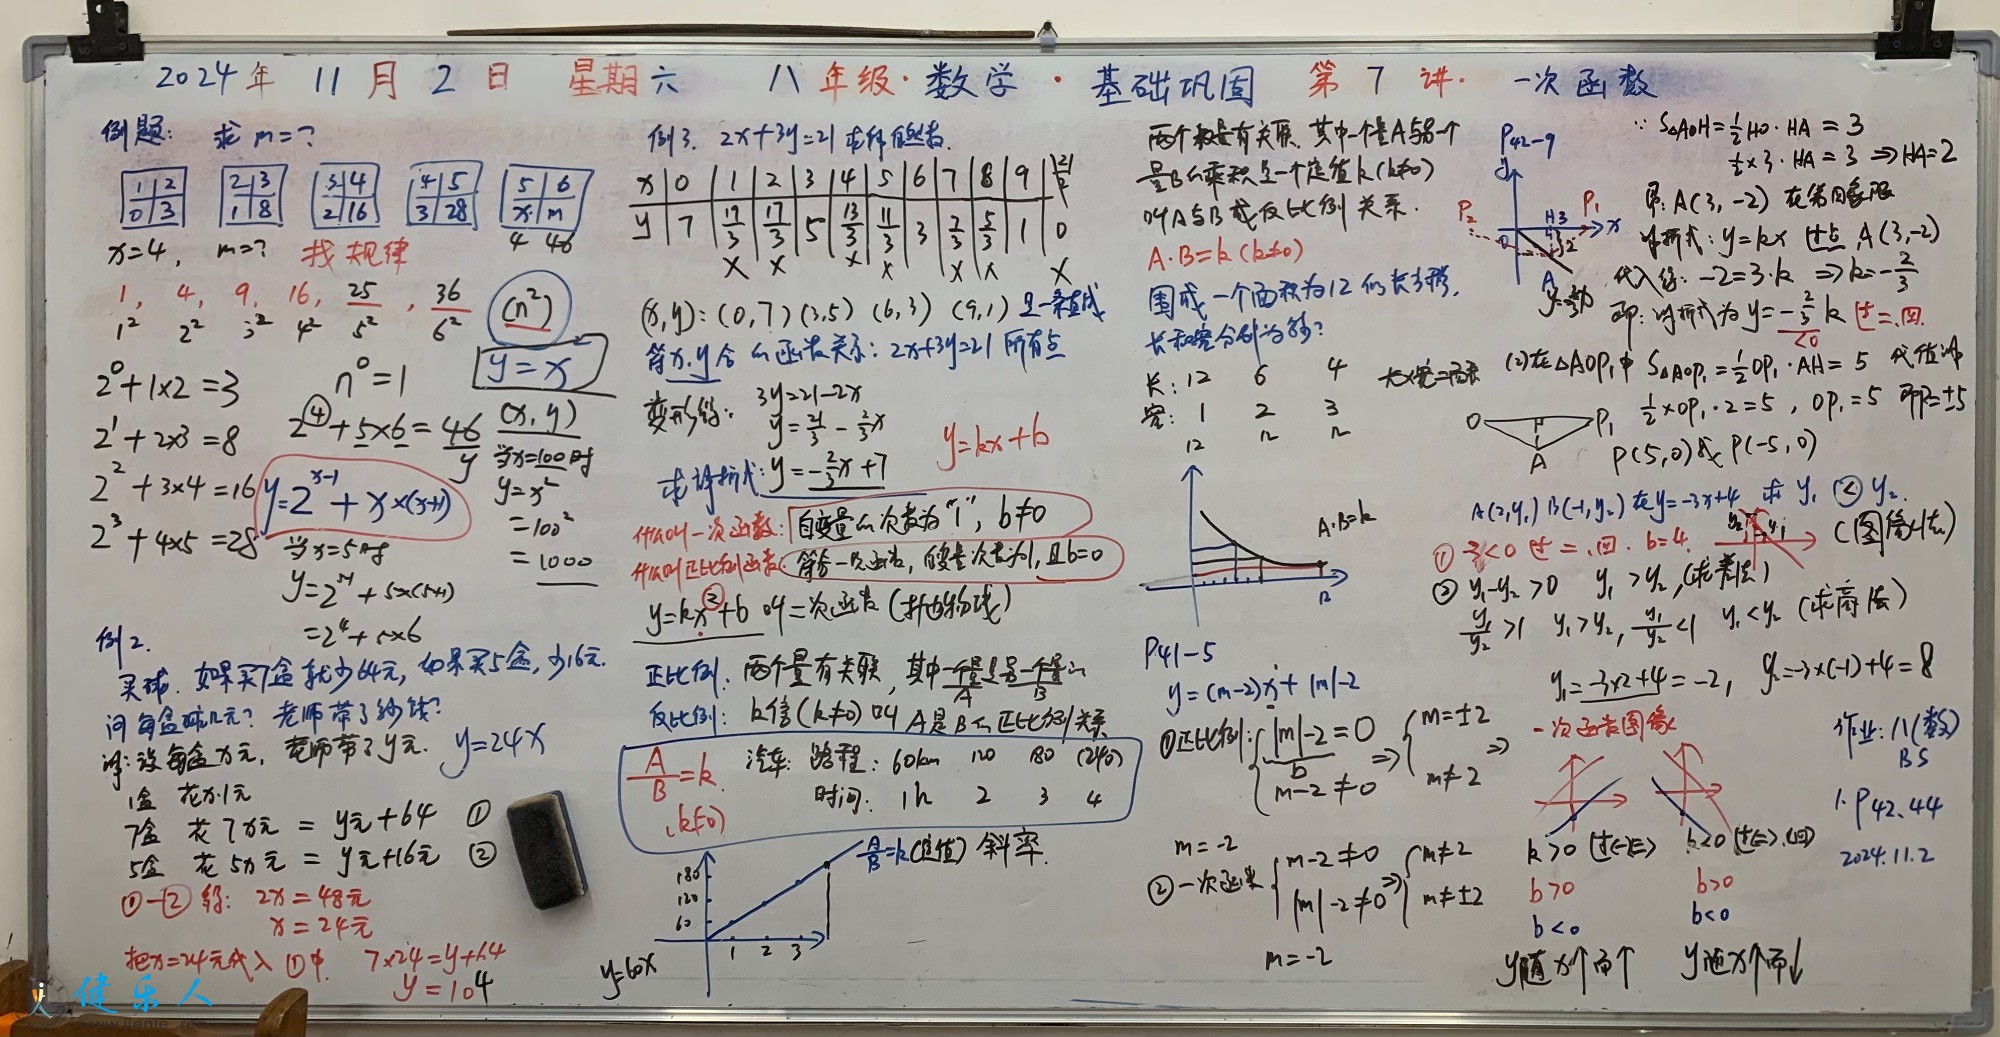 2024年 11月 2日 星期六 八年级·数学·基础巩固 第7讲· 一次函数
例题: 求 m=?
1 2
0 3
2 3
1 8
3 4
2 16
4 5
3 28
5 6
x m
4 46
x=4, m=? 找规律
1, 4, 9, 16, 25, 36
1² 2² 3² 4² 5² 6²
(n²)
y=x²
2⁰+1×2=3
n⁰=1
2¹+2×3=8
2④+5×6=46
y
2²+3×4=16
2³+4×5=28
y=2ˣ⁻¹+x×(x+1)
当x=5时
y=2⁵⁻¹+5×(5+1)
=2⁴+5×6
(x,y)
当x=100时
y=x²
=100²
=1000
例2.
买球. 如果买7盒就少64元, 如果买5盒, 少16元.
问每盒球几元? 老师带了多少钱?
解: 设每盒x元, 老师带了y元. y=24x
1盒 花x元
7盒 花7x元 = y元+64 ①
5盒 花5x元 = y元+16元 ②
①-②得: 2x=48元
x=24元
把x=24元代入①中. 7×24=y+64
y=104
例3. 2x+3y=21 求
x 0 1 2 3 4 5 6 7 8 9 21/2
y 7 19/3 17/3 5 13/3 11/3 3 7/3 5/3 1 0
× × × × × × ×
(x,y): (0,7) (3,5) (6,3) (9,1) 是一条直线
符x.y合的函数关系: 2x+3y=21 所有点
变形得: 3y=21-2x
y=21/3-2/3x
求解析式: y=-2/3x+7
y=kx+b
什么叫一次函数: 自变量的次数为"1", b≠0
什么叫正比例函数: 符合一次函数, 自变量次数为1, 且b=0
y=kx²+b 叫二次函数(抛物线)
正比例: 两个量有关联, 其中一个量是另一个量的
A B
反比例: k倍(k≠0)叫A是B的正比例关系
A/B=k
(k≠0)
汽车: 路程: 60km 120 180 (240)
时间: 1h 2 3 4
A/B=k(定值) 斜率.
180
120
60
1 2 3
y=60x
两个数量有关联. 其中一个量A与另一个
量B的乘积是一个定值k(k≠0)
叫A与B成反比例关系.
A·B=k (k≠0)
围成一个面积为12的长方形,
长和宽分别为多少?
长: 12 6 4 长×宽=面积
宽: 1 2 3
12 12 12
A·B=k
12
P41-5
y=(m-2)x+|m|-2
①正比例: |m|-2=0 ⇒ m=±2 ⇒
b
m-2≠0 m≠2
m=-2
②一次函数 m-2≠0 ⇒ m≠2
|m|-2≠0 m≠±2
m=-2
P42-9
y
P₂ H 3 P₁ x
0 2
A
∵ S△AOH=½HO·HA=3
½×3·HA=3 ⇒HA=2
即: A(3,-2) 在第四象限
解析式: y=kx 过点A(3,-2)
代入得: -2=3·k ⇒k=-2/3
即: 解析式为 y=-2/3k 过二.四.
<0
(2)在△AOP₁中 S△AOP₁=½OP₁·AH=5 代值
½×OP₁·2=5, OP₁=5 即P=±5
O P₁
A
P(5,0)或P(-5,0)
A(2,y₁) B(-1,y₂) 在y=-3x+4 求 y₁ < y₂.
①-3<0 过二.四. b=4. y₂ y₁ (图像法)
② y₁-y₂>0 y₁>y₂, (求差法)
y₁/y₂>1 y₁>y₂, y₁/y₂<1 y₁<y₂ (求商法)
y₁=-3×2+4=-2, y₂=-3×(-1)+4=8
一次函数图像
k>0 过(一)(三) k<0 过(二).(四)
b>0 b>0
b<0 b<0
y随x↑而↑ y随x↑而↓
作业: 八(数)
BS
1. P42.44
2024.11.2
健乐人